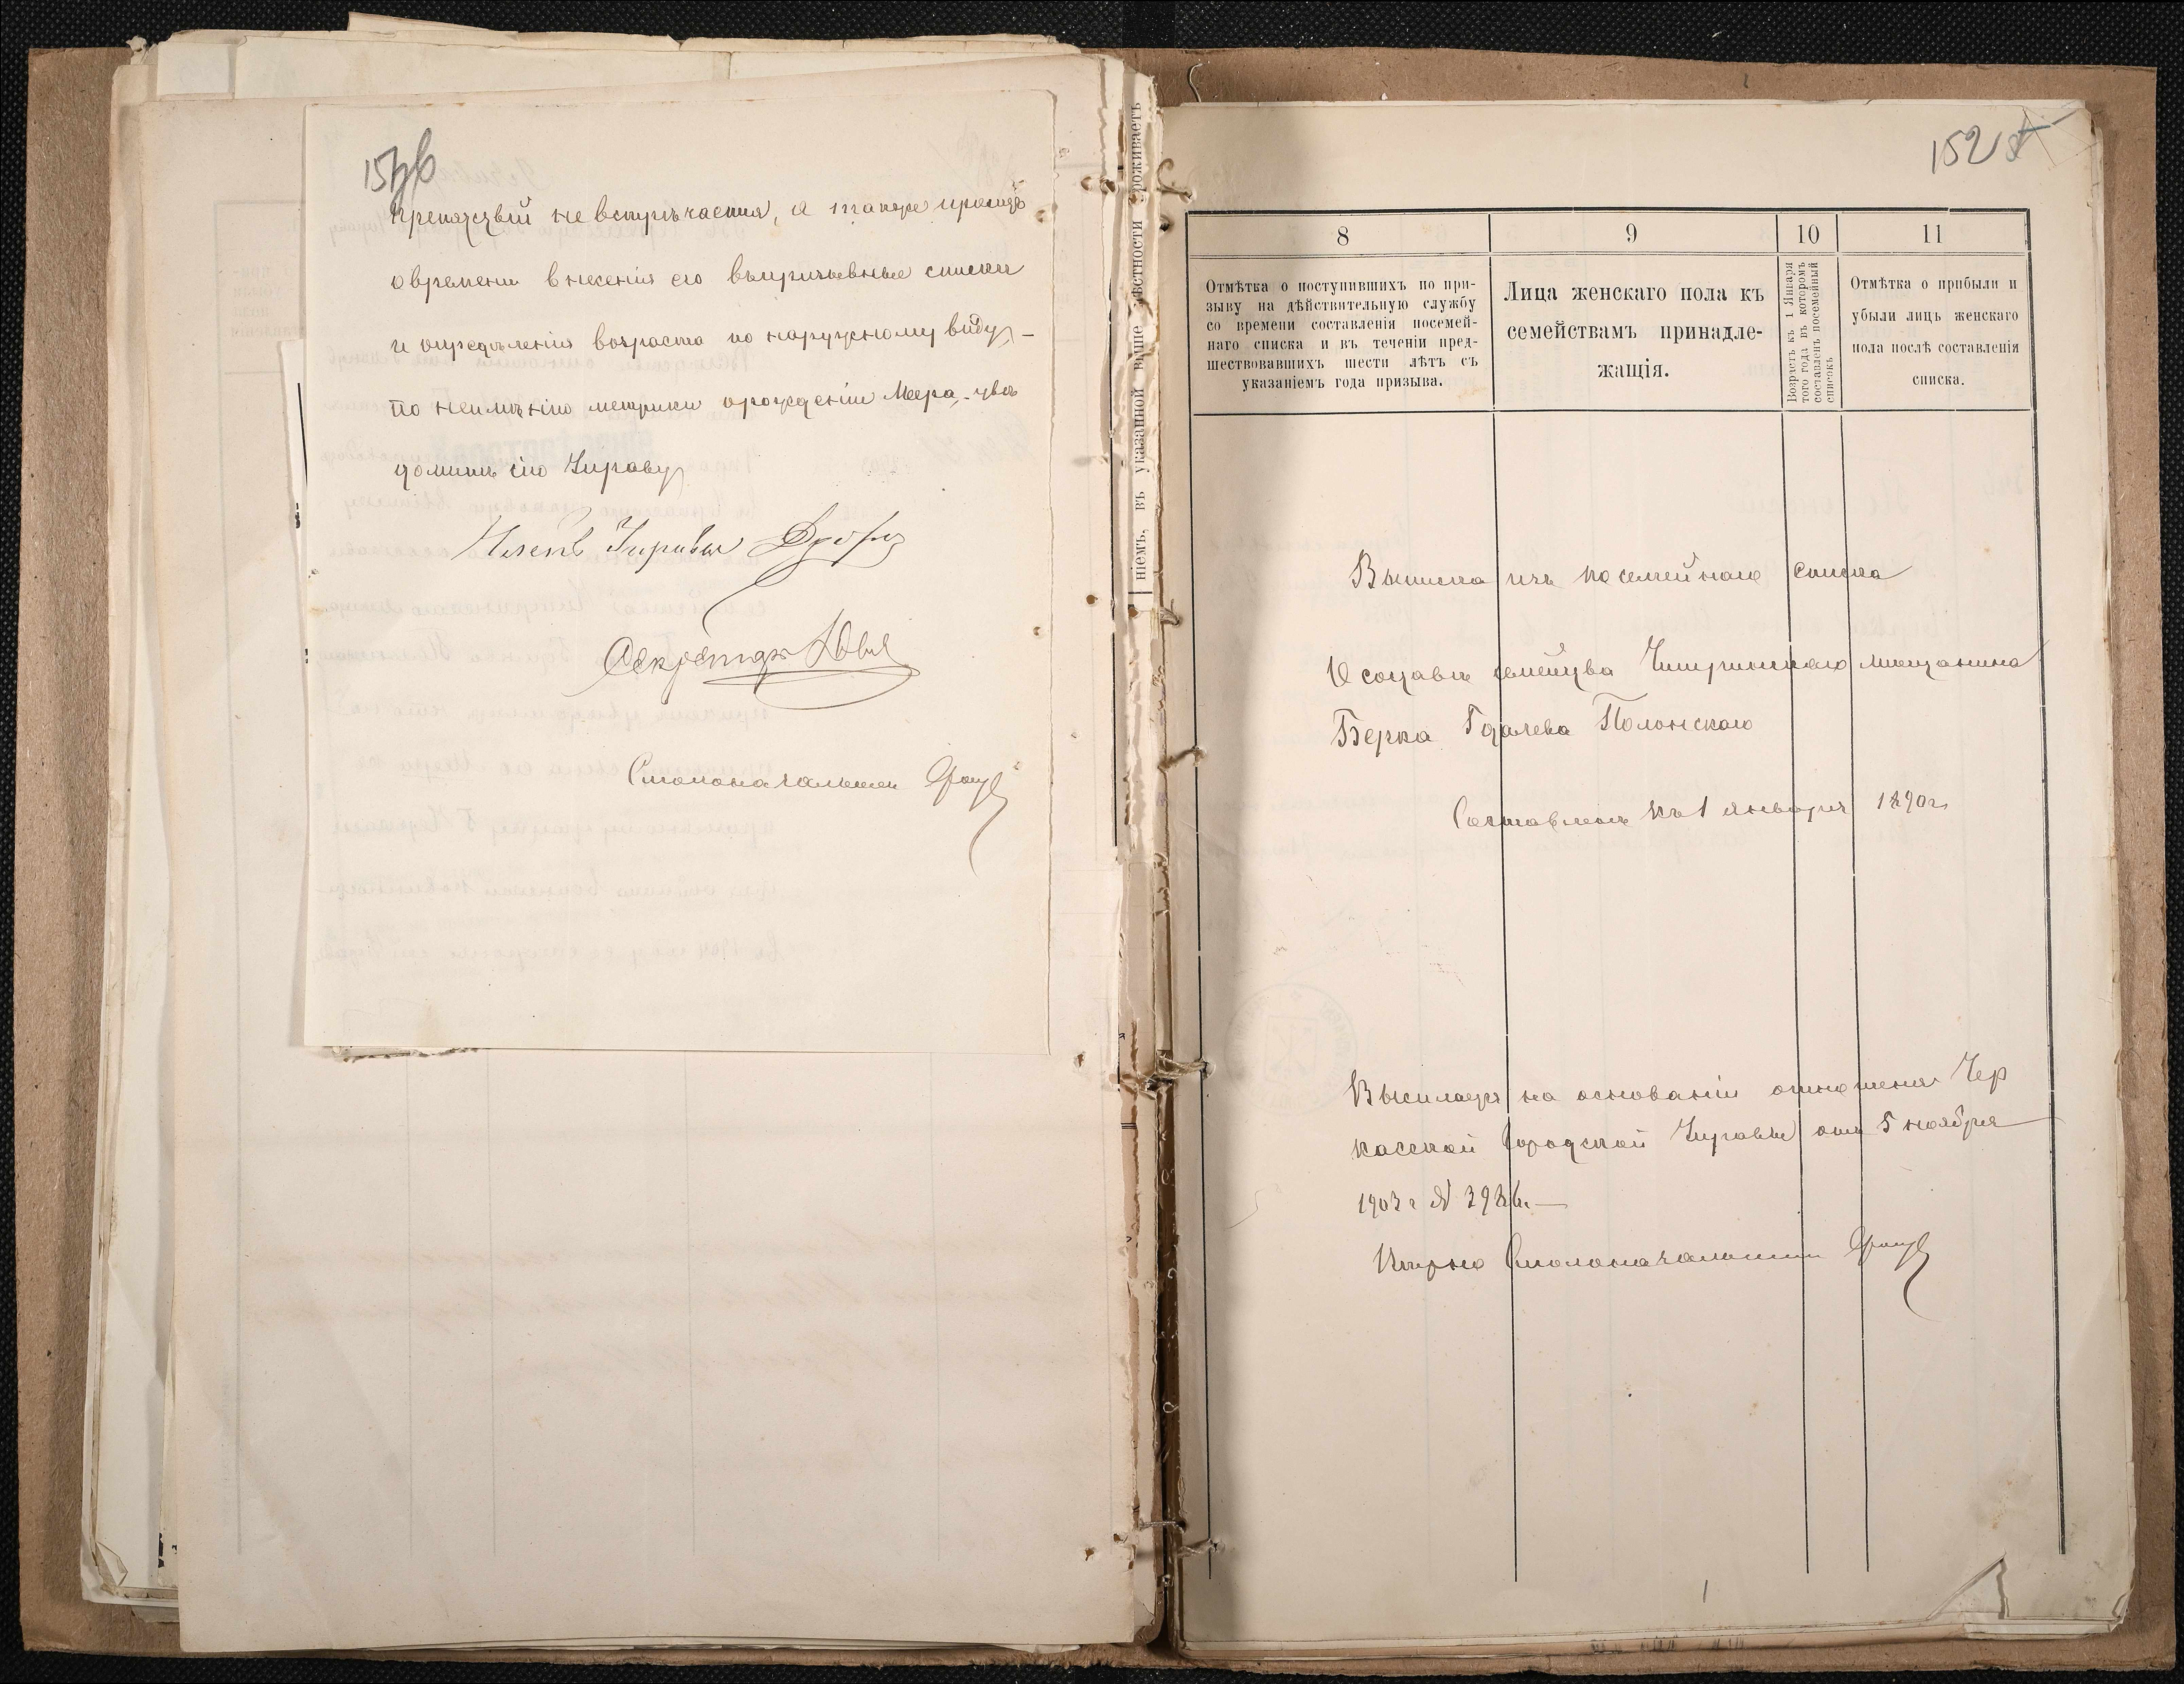 препятствій не встрѣчается, а также проситъ
о времени внесенія его въ призывные списки
и опредѣленія возраста по наружному виду,—
по неимѣнію метрики о рожденіи Меера, увѣ
домить сію Управу
Членъ Управы
Секретарь
Столоначальникъ
ніемъ, въ указанной выше мѣстности проживаетъ
152
8 9 10 11
Отмѣтка о поступившихъ по при-
зыву на дѣйствительную службу
со времени составленія посемей-
наго списка и въ теченіи пред-
шествовавшихъ шести лѣтъ съ
указаніемъ года призыва.
Лица женскаго пола къ
семействамъ принадле-
жащія.
Возрастъ къ 1 Января
того года въ которомъ
составленъ посемейный
списокъ
Отмѣтка о прибыли и
убыли лицъ женскаго
пола послѣ составленія
списка.
Выписка изъ посемейнаго списка
О составѣ семейства Чигиринскаго мѣщанина
Берка Гдалева Полонскаго
Составленъ къ 1 января 1890 г.
Высылается на основаніи отношенія Чер
касской Городской Управы отъ 5 ноября
1903 г № 3986.—
Вѣрно Столоначальникъ